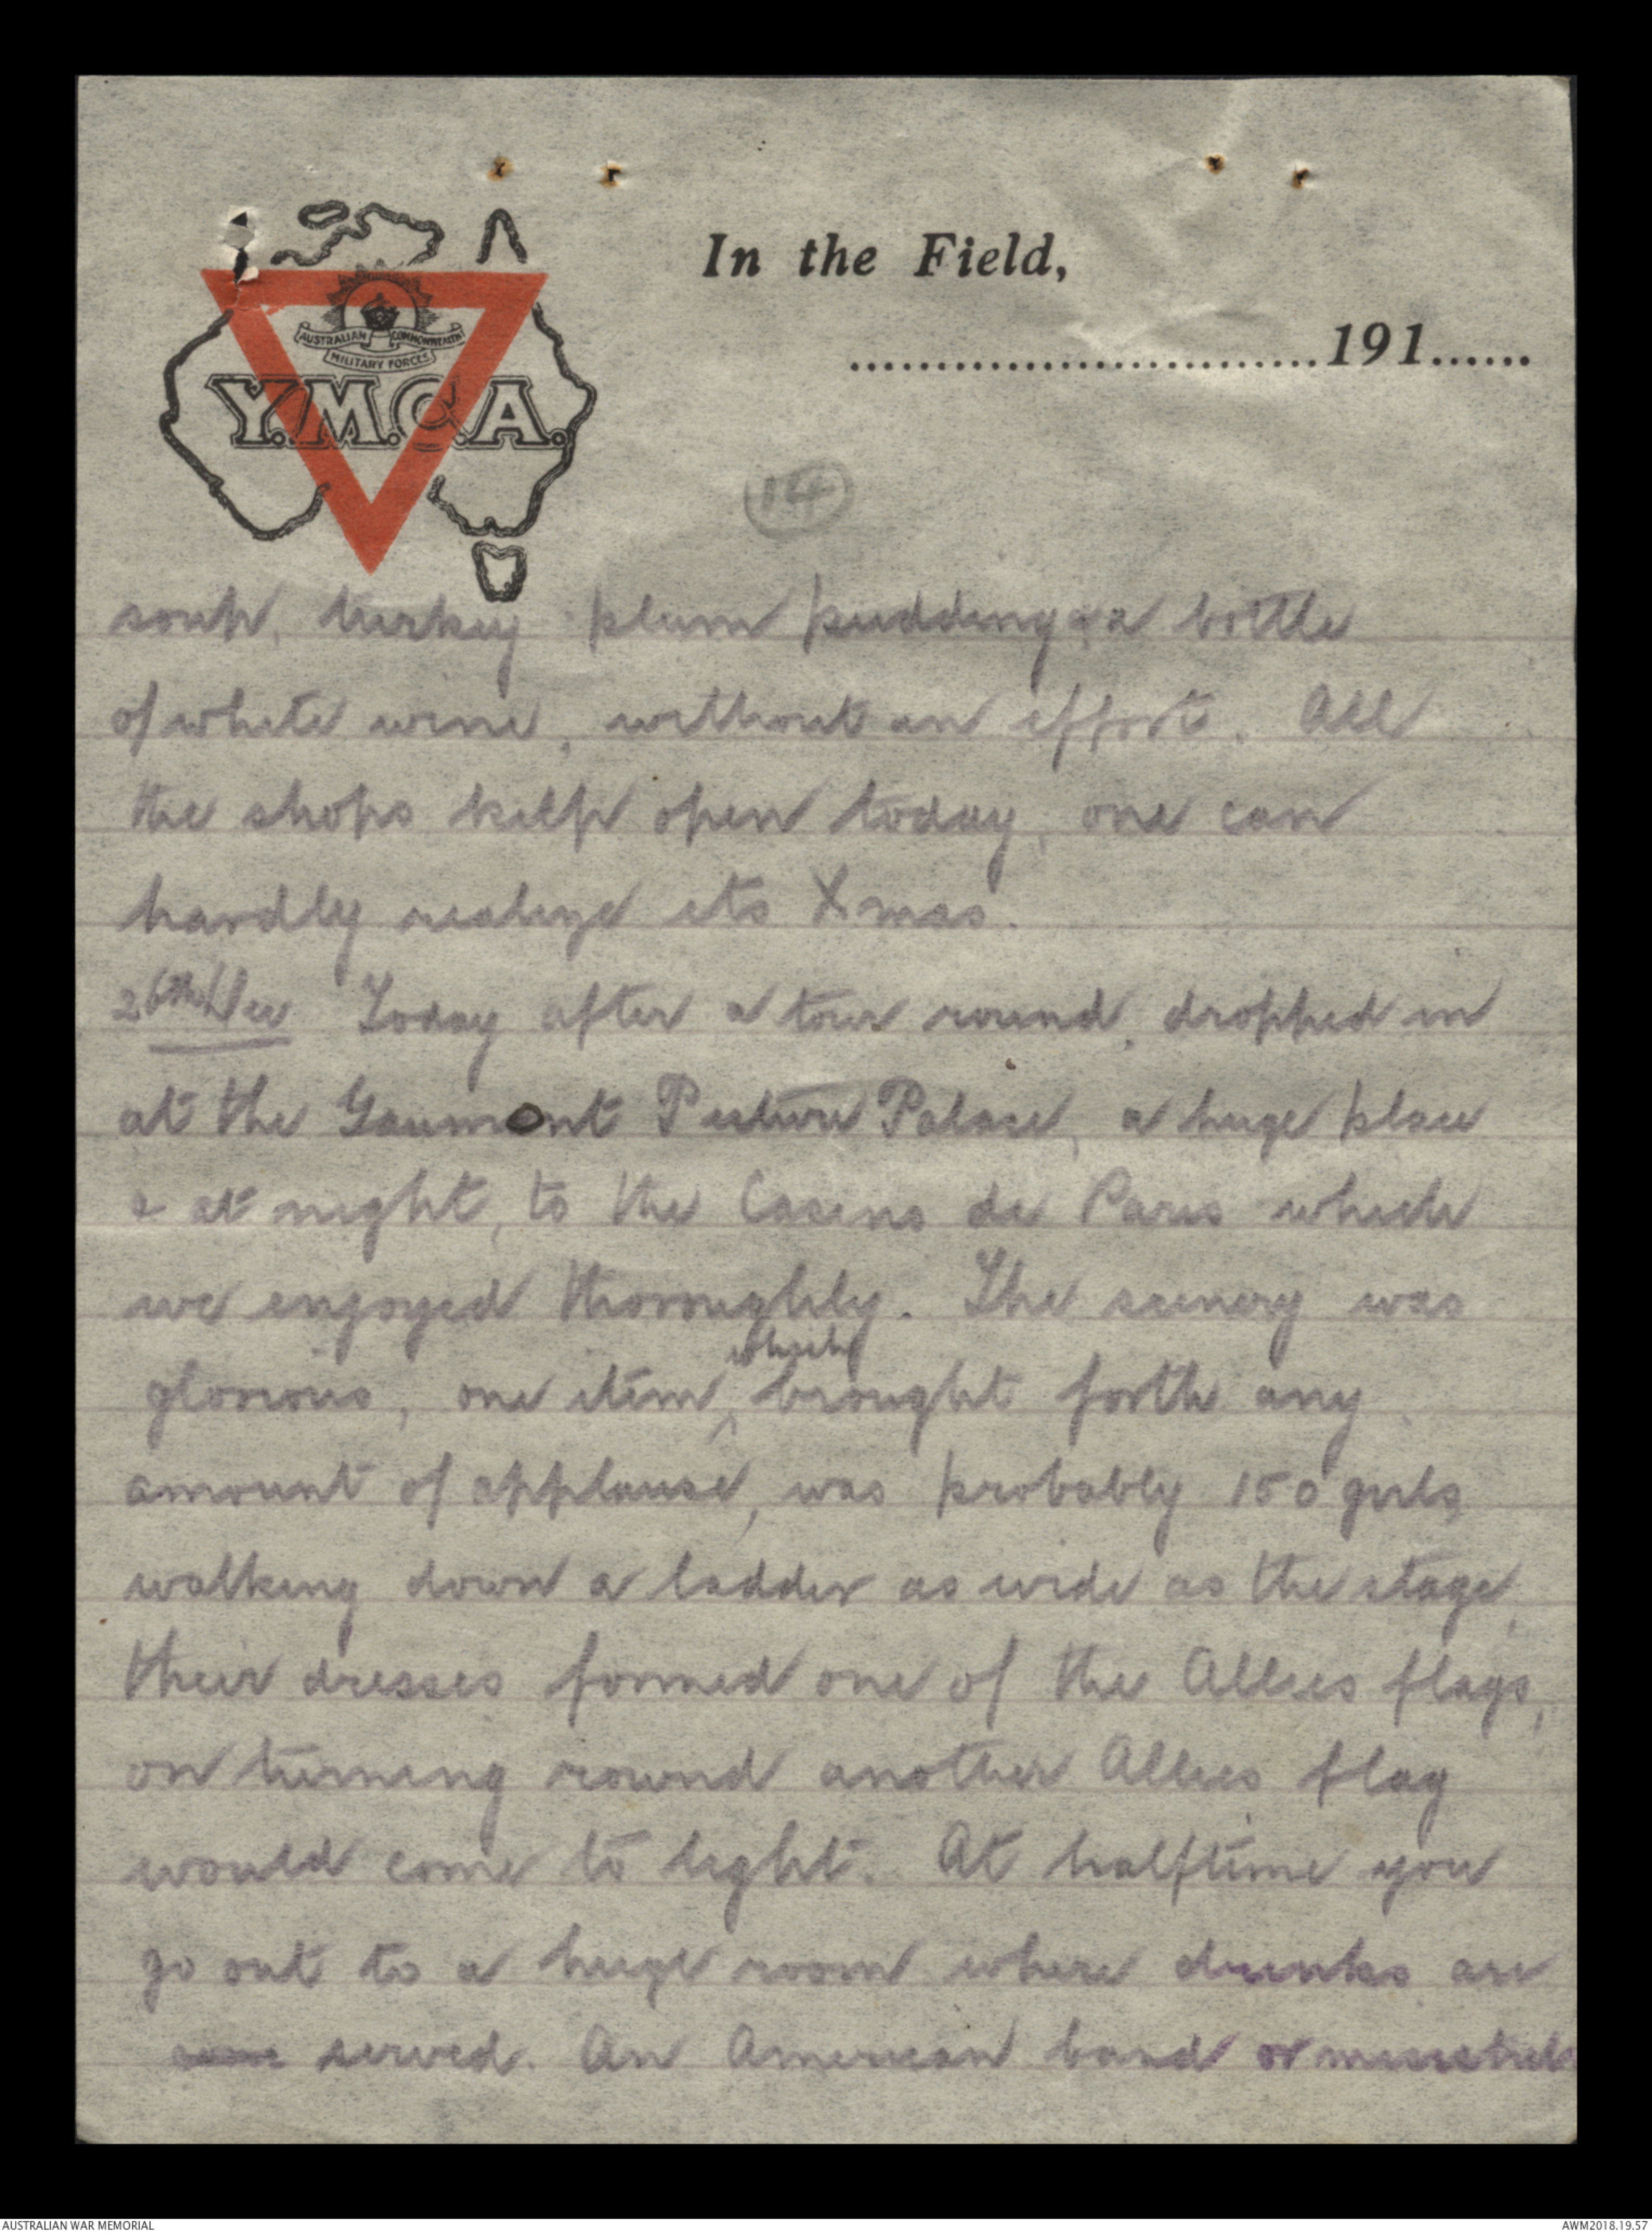 In the Field,
..............................191......
AUSTRALIAN COMMONWEALTH
MILITARY FORCES
Y.M.C.A.
14
soup, turkey plum pudding & a bottle
of white wine, without an effort. All
the shops kelp open today, one can
hardly realize its Xmas.
26th/Dec Today after a tour round, dropped in
at the Gaumont Picture Palace, a huge place
& at night, to the Casino de Paris which
we enjoyed thoroughly. The scenery was
which
glorious, one item, brought forth any
amount of applause, was probably 150 girls
walking down a ladder as wide as the stage,
their dresses formed one of the Allies flags,
on turning round another Allies flag
would come to light. At halftime you
go out to a huge room where drinks are
served. An American band or minstrels
AUSTRALIAN WAR MEMORIAL
AWM2018.19.57